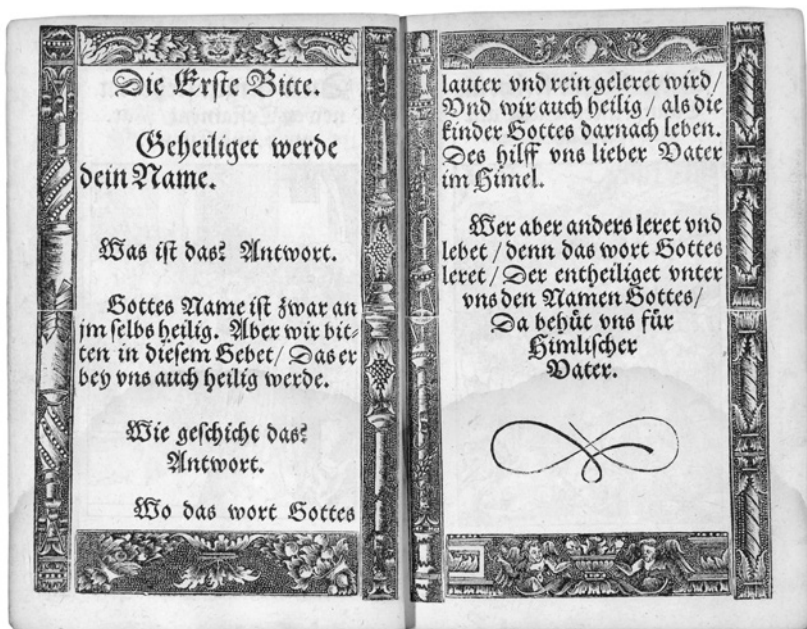 Die Erste Bitte.
Geheiliget werde
dein Name.
Was ist das? Antwort.
Gottes Name ist zwar an
jm selbs heilig. Aber wir bit-
ten in diesem Gebet/ Das er
bey vns auch heilig werde.
Wie geschicht das?
Antwort.
Wo das wort Gottes
lauter vnd rein geleret wird/
Vnd wir auch heilig/ als die
kinder Gottes darnach leben.
Des hilff vns lieber Vater
im Himel.
Wer aber anders leret vnd
lebet/ denn das wort Gottes
leret/ Der entheiliget vnter
vns den Namen Gottes/
Da behüt vns für
Himlischer
Vater.